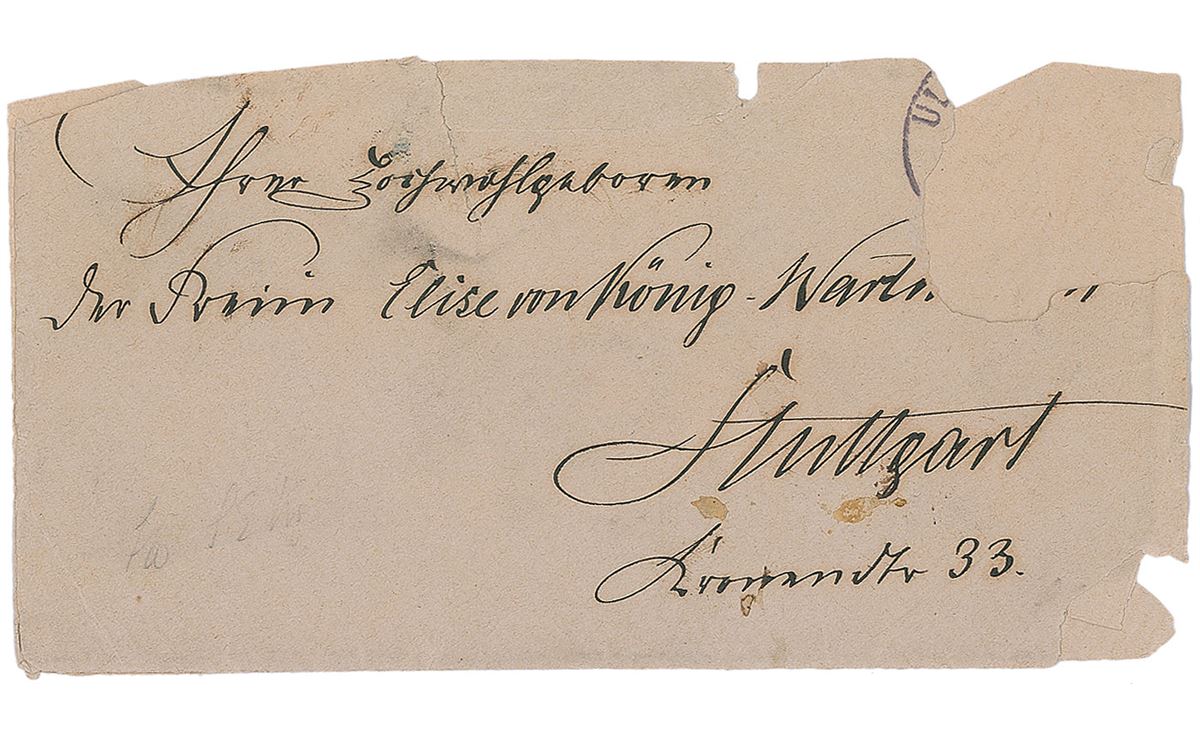 Ihrer Hochwohlgeboren
der Freiin Elise von König-Wart
Stuttgart
Kronenstr 33.